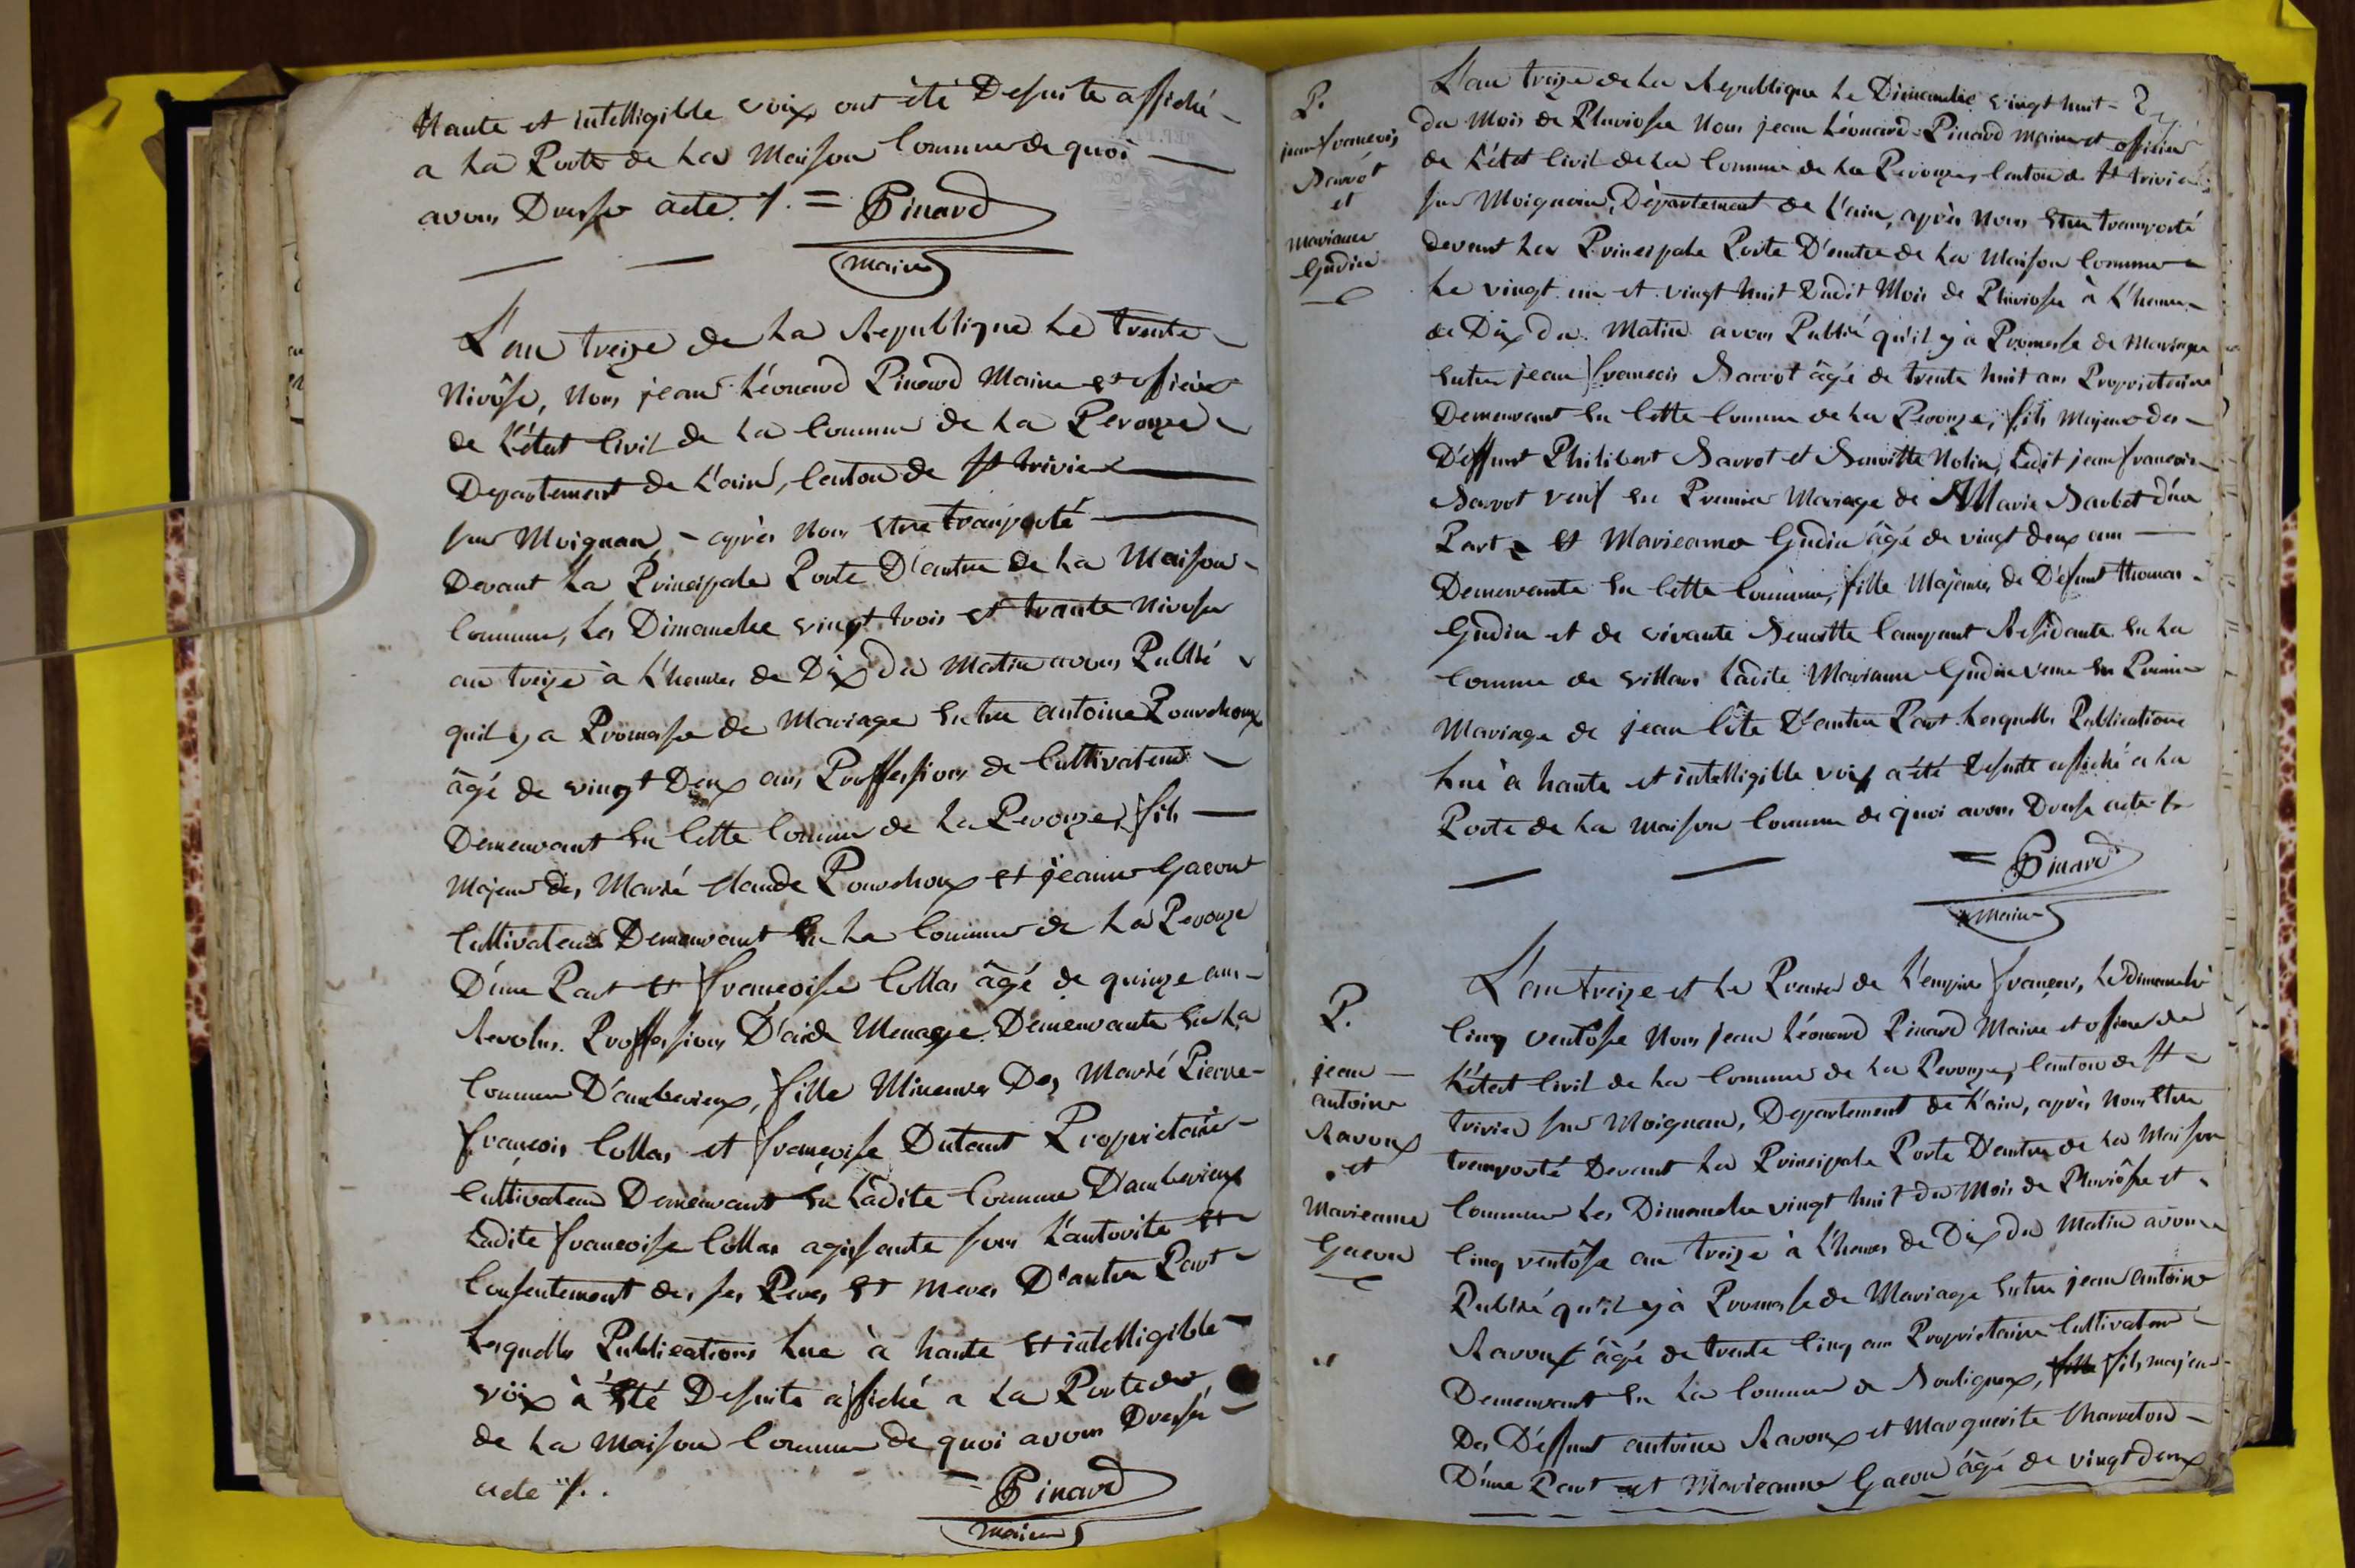 Haute et intelligible voix ont été Desuite affiché
a La Porte de La Maison Commune de quoi
avons Dressé acte ./. = Pinard
maire
L'an treize de La Republique Le trente
Nivôse, Nous jean Léonard Pinard Maire et officier
de L'état Civil de La Commune de La Perouze
Departement de L'ain, Canton de St trivier
sur Moignan, après Nous Etre transporté
Devant La Principale Porte D'entre de La Maison
Commune, Les Dimanche vingt trois et trante Nivose
an treize à L'heure de Dix Du Matin avons Publié
quil y a Promesse de Mariage Entre antoine Pourchoux
âgé de vingt Deux ans Proffession de Cultivateur
Demeurant En Cette Commune de La Perouze, fils
Majeur des Marié Claude Pourchoux et jeanne Gacon
Cultivateur Demeurant En La Commune de La Perouze
D'une Part Et françoise Collas âgé de quinze ans
Revolus. Proffession D'aide Menage Demeurante En La
Commune D'amberieux, fille Mineure Des Marié Pierre
françois Collas et françoise Dutant Proprietaire
Cultivateur Demeurant En Ladite Commune D'amberieux
Ladite françoise Collas agissante sous L'autorité Et
Consentement des ses Peres Et Meres D'autre Part
Lesquelles Publications Lue à haute Et intelligible
voix à Eté Desuite affiché a La Porte de
de La Maison Commune de quoi avons Dressé
acte ./. = Pinard
maire
P.
jean françois
Barrot
et
marianne
Gudin
L'an treize de La Republique Le Dimanche vingt huit
du Mois de Pluviose Nous jean Léonard Pinard Maire et officier
de L'état Civil de La Commune de La Perouze, Canton de St trivier
sur Moignan, Département de L'ain, après Nous Etre transporté
devant La Principale Porte D'entre de La Maison Commune
Le vingt un et vingt huit Dudit Mois de Pluviose à L'heure
de Dix du Matin avons Publié qu'il y à Promesse de Mariage
Entre jean françois Barrot âgé de trente huit ans Proprietaire
Demeurant En Cette Commune de La Perouze, fils Majeur des
Déffunt Philibert Barrot et Benoitte Nolin, Ledit jean françois
Barrot veuf En Premier Mariage de Marie Barbet d'une
Part Et Marieanne Gudin âgé de vingt deux ans
Demeurante En Cette Commune, fille Majeure de Défunt thomas
Gudin et de vivante Benoitte Campant Residante En La
Commune de villars Ladite Marianne Gudin veuve En Premier
Mariage de jean Cête D'autre Part Lesquelles Publications
Lue à haute et intelligible voix a été Desuitte affiché a La
Porte de La Maison Commune de quoi avons Dressé acte
= Pinard
maire
P.
jean
antoine
Ravoux
et
Marieanne
Gacon
L'an treize et Le Premier de L'empire français, Le Dimanche
Cinq ventôse Nous jean Léonard Pinard Maire et officier de
L'état Civil de La Commune de La Perouze, Canton de St
trivier sur Moignan, Departement de L'ain, après Nous Etre
transporté Devant La Principale Porte D'entre de La Maison
Commune Les Dimanche vingt huit du Mois de Pluviôse et
Cinq ventôse an treize à L'heure de Dix du Matin avons
Publié qu'il y à Promesse de Mariage Entre jean antoine
Ravoux âgé de trente Cinq ans Proprietaire Cultivateur
Demeurant En La Commune de Bouligneux, fils majeur
Des Déffunt antoine Ravoux et Marguerite Charreton
D'une Part et Marieanne Gacon âgé de vingt deux